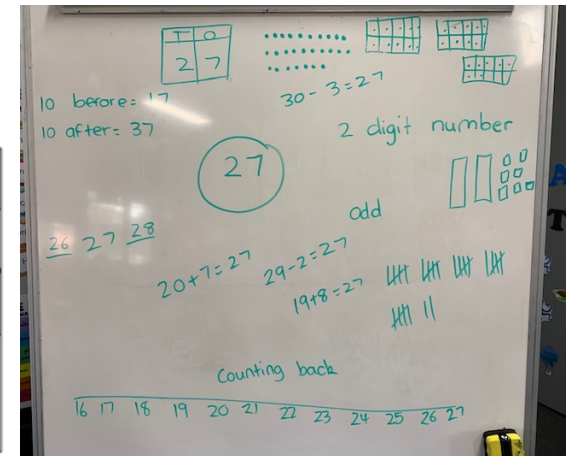 T O
2 7
10 before = 17
10 after = 37
30 - 3 = 27
2 digit number
27
odd
26 27 28
20 + 7 = 27
29 - 2 = 27
19 + 8 = 27
Counting back
16 17 18 19 20 21 22 23 24 25 26 27